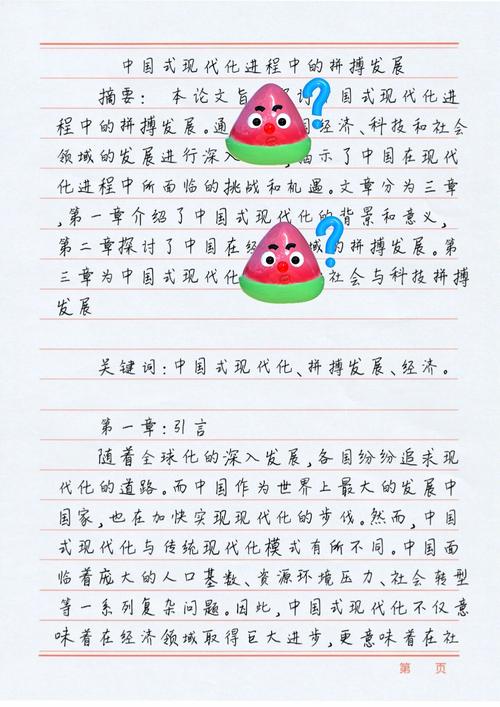 中国式现代化进程中的拼搏发展
摘要: 本论文旨 讨 国式现代化进
程中的拼搏发展。通 国经济、科技和社会
领域的发展进行深入 示了中国在现代
化进程中所面临的挑战和机遇。文章分为三章
,第一章介绍了中国式现代化的背景和意义,
第二章探讨了中国在经 域的拼搏发展。第
三章为中国式现代化 社会与科技拼搏
发展
关键词:中国式现代化、拼搏发展、经济。
第一章:引言
随着全球化的深入发展,各国纷纷追求现
代化的道路。而中国作为世界上最大的发展中
国家,也在加快实现现代化的步伐。然而,中国
式现代化与传统现代化模式有所不同。中国面
临着庞大的人口基数、资源环境压力、社会转型
等一系列复杂问题。因此,中国式现代化不仅意
味着在经济领域取得巨大进步,更意味着在社
第 页